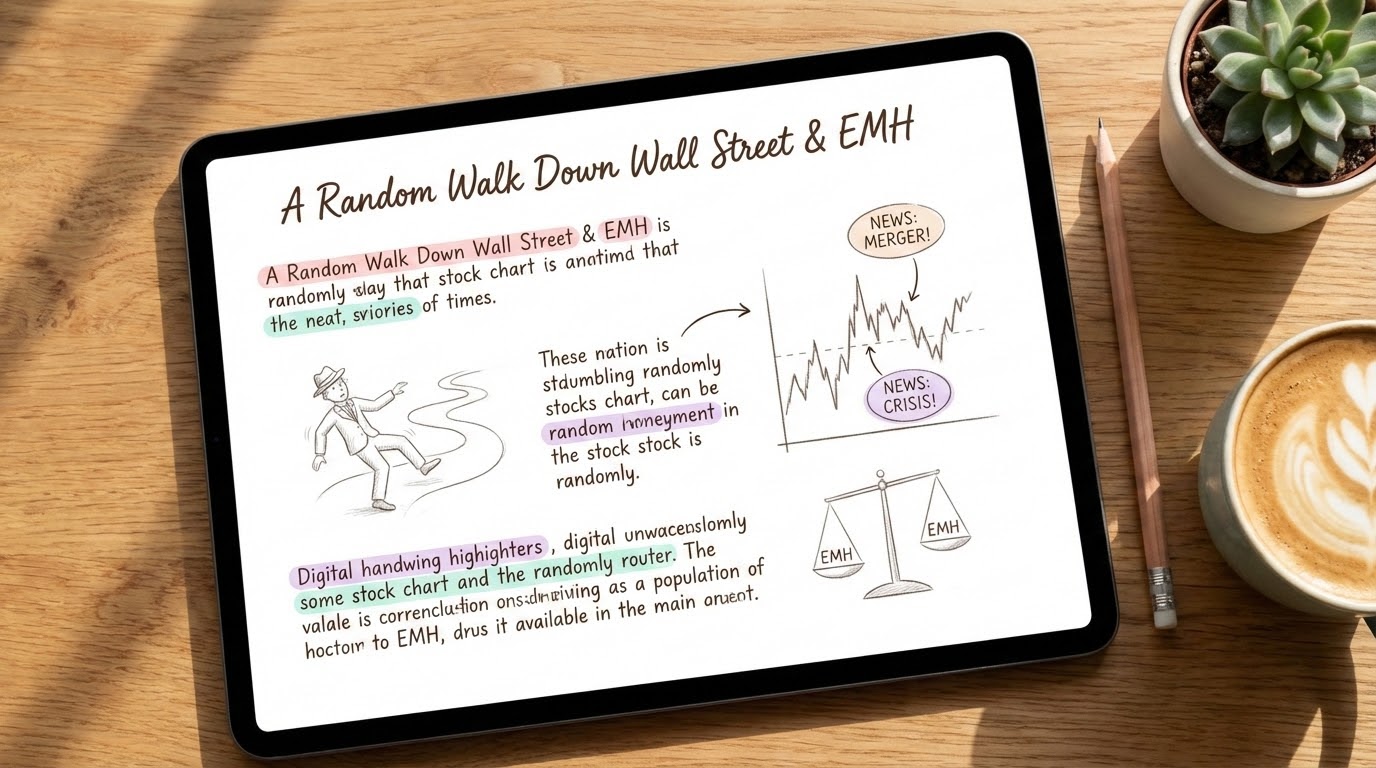 A Random Walk Down Wall Street & EMH
A Random Walk Down Wall Street & EMH is
randomly that stock chart is anotimd that
the neat, sviories of times.
These nation is
stdumbling randomly
stocks chart, can be
random in
the stock stock is
randomly.
NEWS:
MERGER!
NEWS:
CRISIS!
EMH
EMH
Digital handwing highighters, digital
some stock chart and the randomly router. The
valale is as a population of
to EMH, drus it available in the main